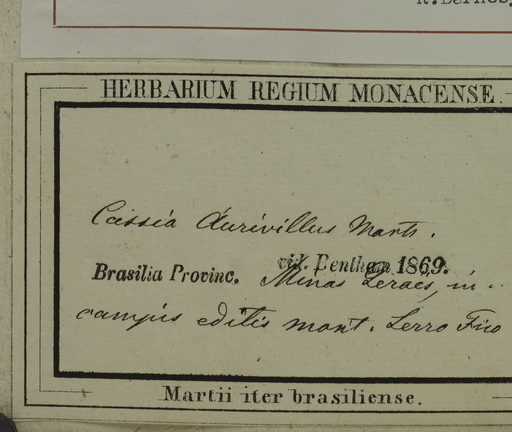 HERBARIUM REGIUM MONACENSE.
Cassia aurivillus Mart.
vid. Bentham 1869.
Brasilia Provinc. Minas Geraës, in
campis editis mont. Serro Frio
Martii iter brasiliense.